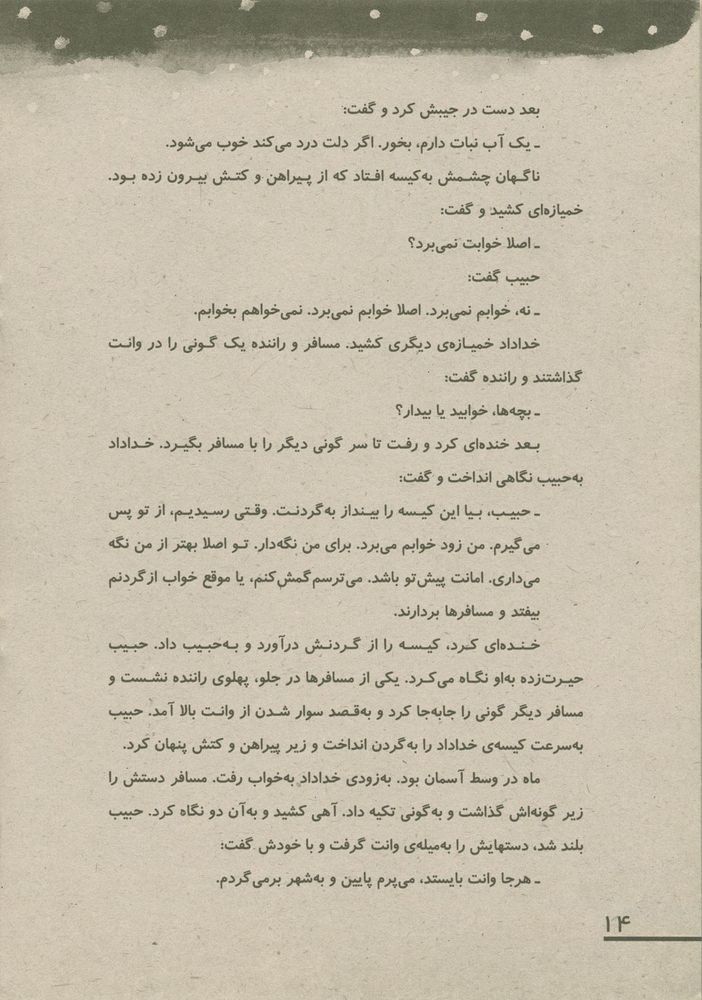 بعد دست در جیبش کرد و گفت:
ـ یک آب نبات دارم، بخور. اگر دلت درد می‌کند خوب می‌شود.
ناگهان چشمش به‌کیسه افتاد که از پیراهن و کتش بیرون زده بود.
خمیازه‌ای کشید و گفت:
ـ اصلا خوابت نمی‌برد؟
حبیب گفت:
ـ نه، خوابم نمی‌برد. اصلا خوابم نمی‌برد. نمی‌خواهم بخوابم.
خداداد خمیازه‌ی دیگری کشید. مسافر و راننده یک گونی را در وانت
گذاشتند و راننده گفت:
ـ بچه‌ها، خوابید یا بیدار؟
بعد خنده‌ای کرد و رفت تا سر گونی دیگر را با مسافر بگیرد. خداداد
به‌حبیب نگاهی انداخت و گفت:
ـ حبیب، بیا این کیسه را بینداز به‌گردنت. وقتی رسیدیم، از تو پس
می‌گیرم. من زود خوابم می‌برد. برای من نگه‌دار. تو اصلا بهتر از من نگه
می‌داری. امانت پیش‌تو باشد. می‌ترسم‌گمش‌کنم، یا موقع خواب ازگردنم
بیفتد و مسافرها بردارند.
خنده‌ای کرد، کیسه را از گردنش درآورد و به‌حبیب داد. حبیب
حیرت‌زده به‌او نگاه می‌کرد. یکی از مسافرها در جلو، پهلوی راننده نشست و
مسافر دیگر گونی را جابه‌جا کرد و به‌قصد سوار شدن از وانت بالا آمد. حبیب
به‌سرعت کیسه‌ی خداداد را به‌گردن انداخت و زیر پیراهن و کتش پنهان کرد.
ماه در وسط آسمان بود. به‌زودی خداداد به‌خواب رفت. مسافر دستش را
زیر گونه‌اش گذاشت و به‌گونی تکیه داد. آهی کشید و به‌آن دو نگاه کرد. حبیب
بلند شد، دستهایش را به‌میله‌ی وانت گرفت و با خودش گفت:
ـ هرجا وانت بایستد، می‌پرم پایین و به‌شهر برمی‌گردم.
۱۴